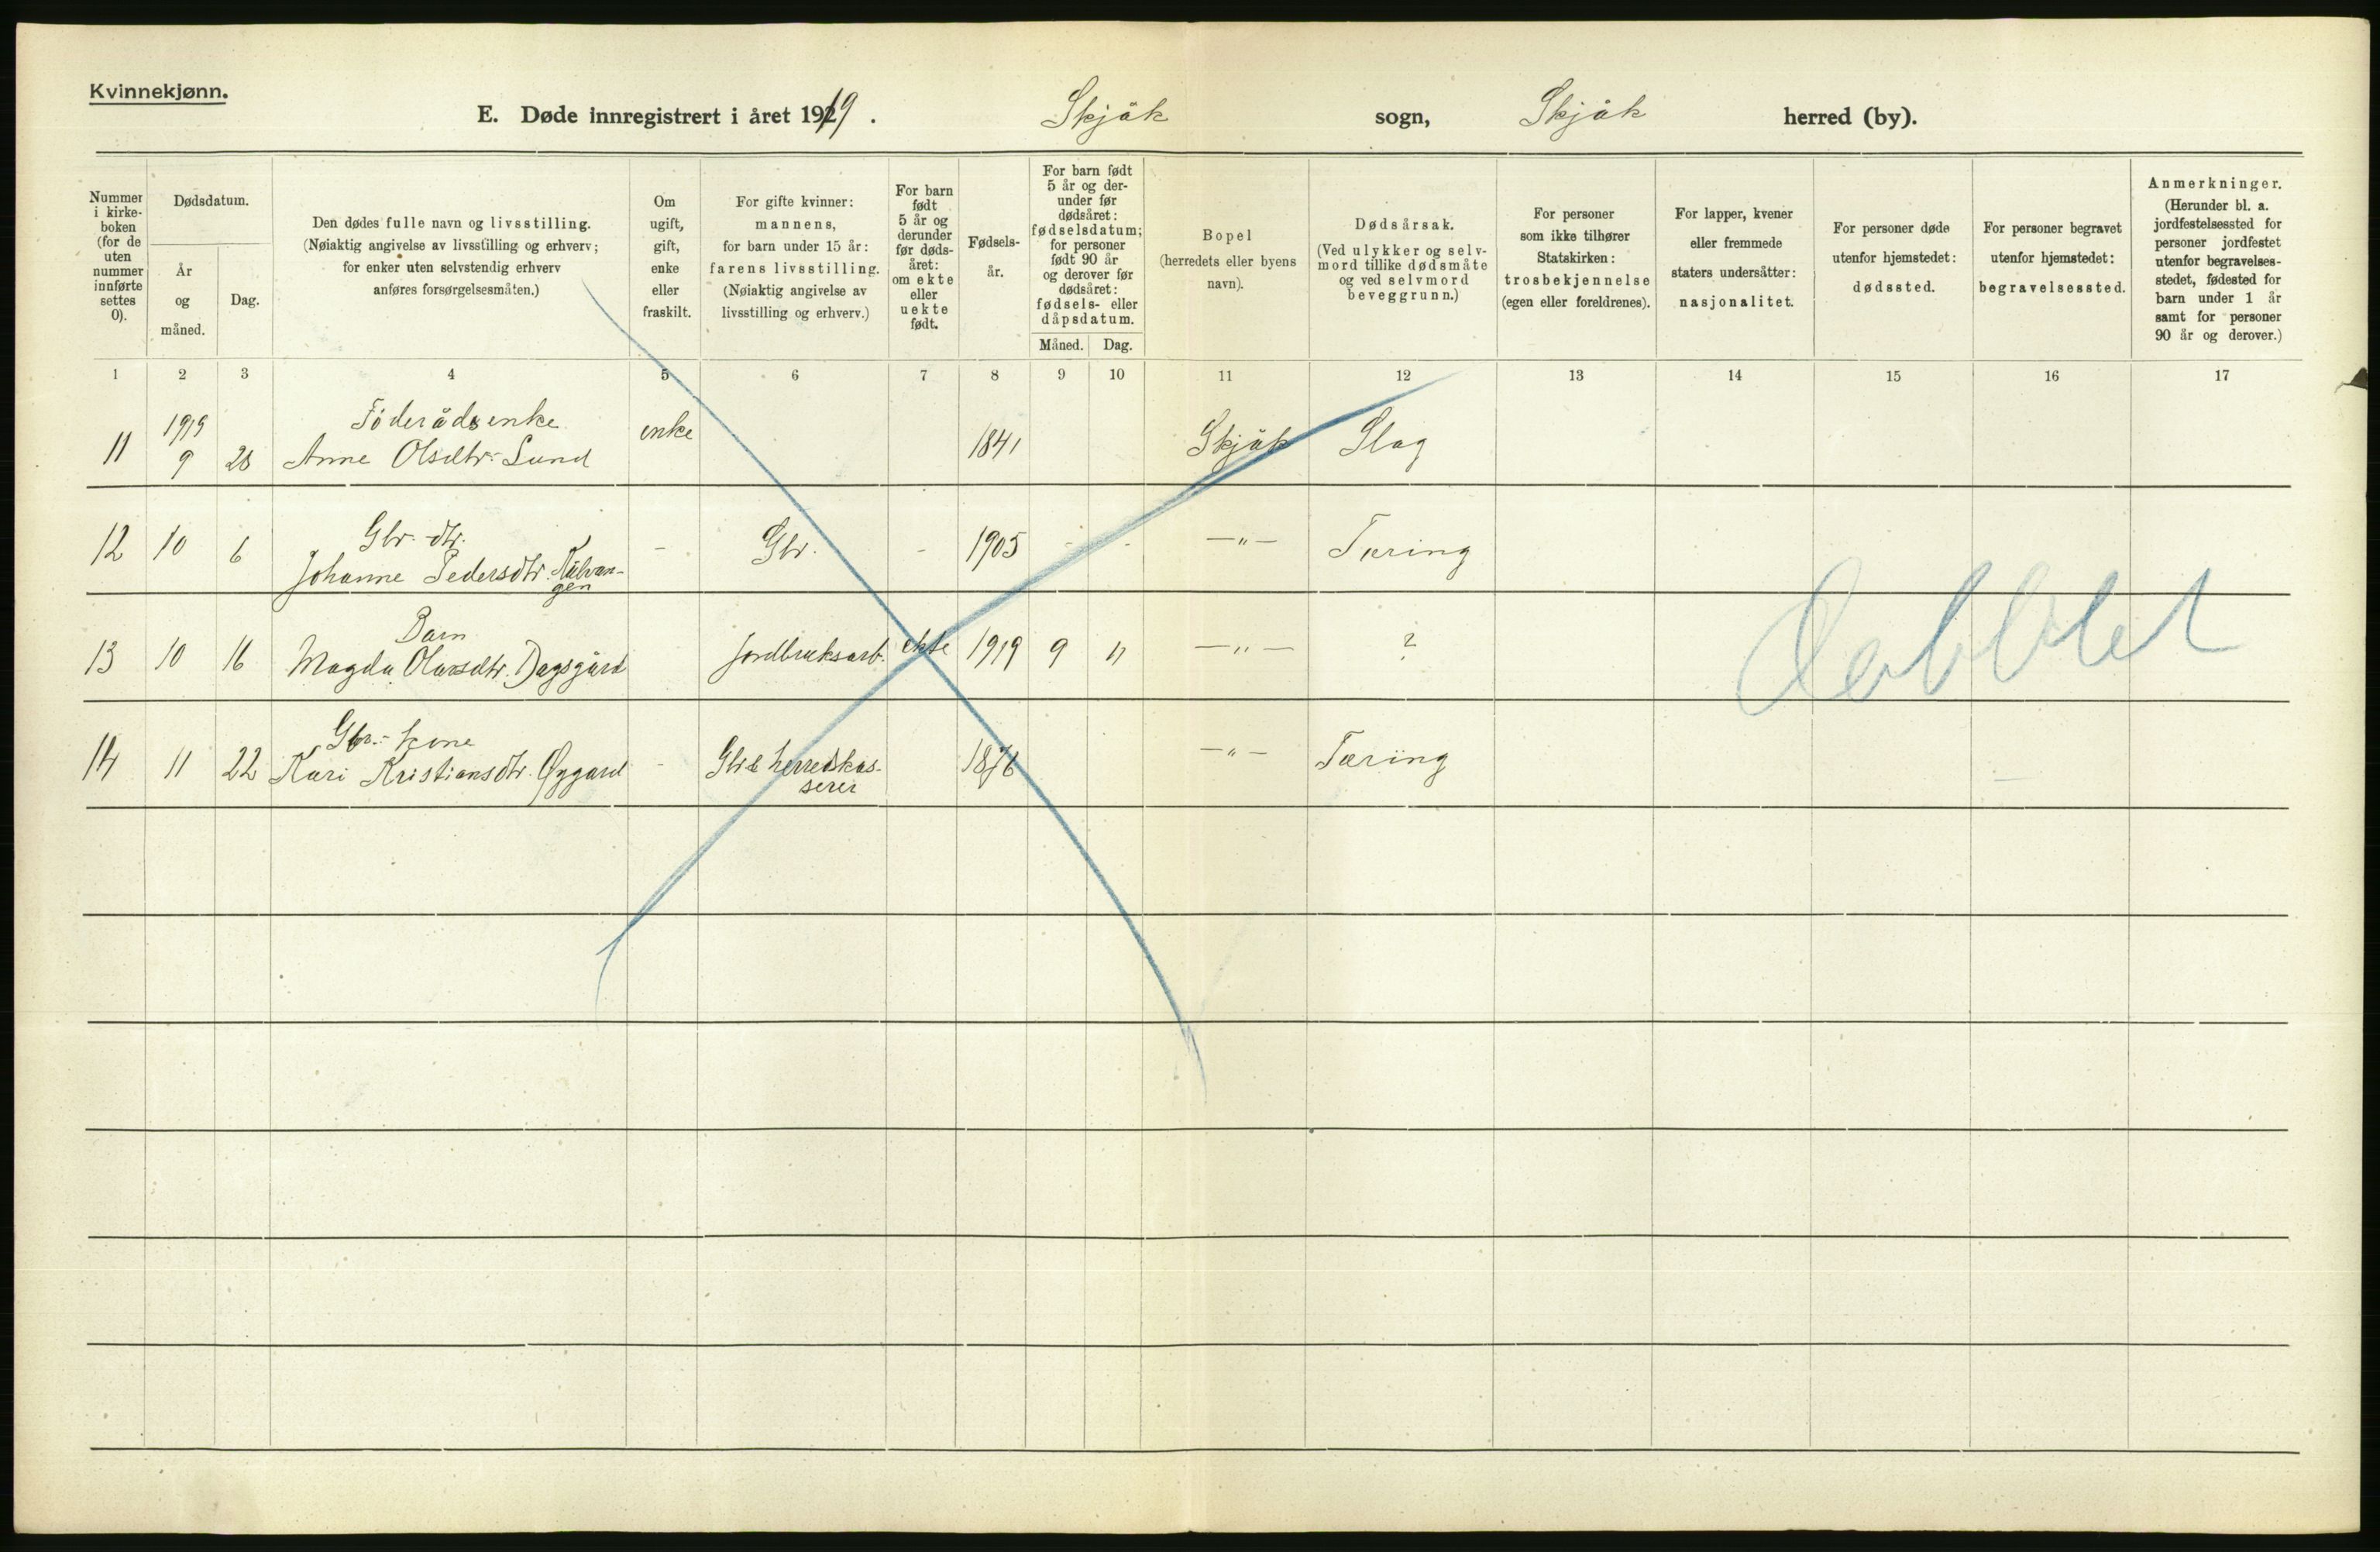 Kvinnekjønn.
E. Døde innregistrert i året 1919. Skjåk sogn, Skjåk herred (by).
Nummer i kirkeboken (for de uten nummer innførte settes 0).
Dødsdatum.
År og måned.
Dag.
Den dødes fulle navn og livsstilling.
(Nøiaktig angivelse av livsstilling og erhverv;
for enker uten selvstendig erhverv
anføres forsørgelsesmåten.)
Om
ugift,
gift,
enke
eller
fraskilt.
For gifte kvinner:
mannens,
for barn under 15 år:
farens livsstilling.
(Nøiaktig angivelse av
livsstilling og erhverv.)
For barn
født
5 år og
derunder
før døds-
året:
om ekte
eller
uekte
født.
Fødsels-
år.
For barn født
5 år og der-
under før
dødsåret:
fødselsdatum;
for personer
født 90 år
og derover før
dødsåret:
fødsels- eller
dåpsdatum.
Måned. Dag.
Bopel
(herredets eller byens
navn).
Dødsårsak.
(Ved ulykker og selv-
mord tillike dødsmåte
og ved selvmord
beveggrunn.)
For personer
som ikke tilhører
Statskirken:
trosbekjennelse
(egen eller foreldrenes).
For lapper, kvener
eller fremmede
staters undersåtter:
nasjonalitet.
For personer døde
utenfor hjemstedet:
dødssted.
For personer begravet
utenfor hjemstedet:
begravelsessted.
Anmerkninger.
(Herunder bl. a.
jordfestelsessted for
personer jordfestet
utenfor begravelses-
stedet, fødested for
barn under 1 år
samt for personer
90 år og derover.)
1 2 3 4 5 6 7 8 9 10 11 12 13 14 15 16 17
1919 Föderådsenke
11 9 28 Anne Olsdtr. Lund enke 1841 Skjåk Slag
Gbr. dtr.
12 10 6 Johanne Pedersdtr. - Gbr. - 1905 - - -"- Tæring
Barn
13 10 16 Magda Olavsdtr. Dagsgård Jordbruksarb. ekte 1919 9 11 -"- ?
Gbr.- kone
14 11 22 Kari Kristiansdtr. Øygard - Gbr & herredskas-
serer 1876 -"- Tæring